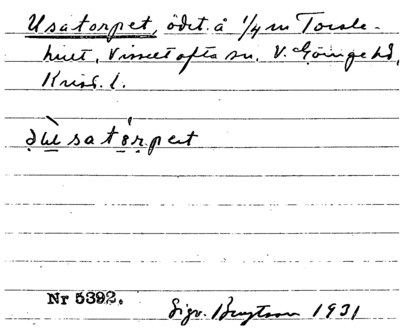 Usatorpet, ödet. å 1/4 m Torale-
hult, Visseltofta sn. V. Göinge hd,
Krist. l.
Nr 5392.
Sigv. Bengtsson 1931